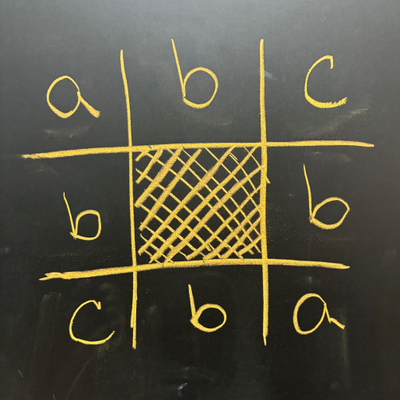 a b c
b b
c b a